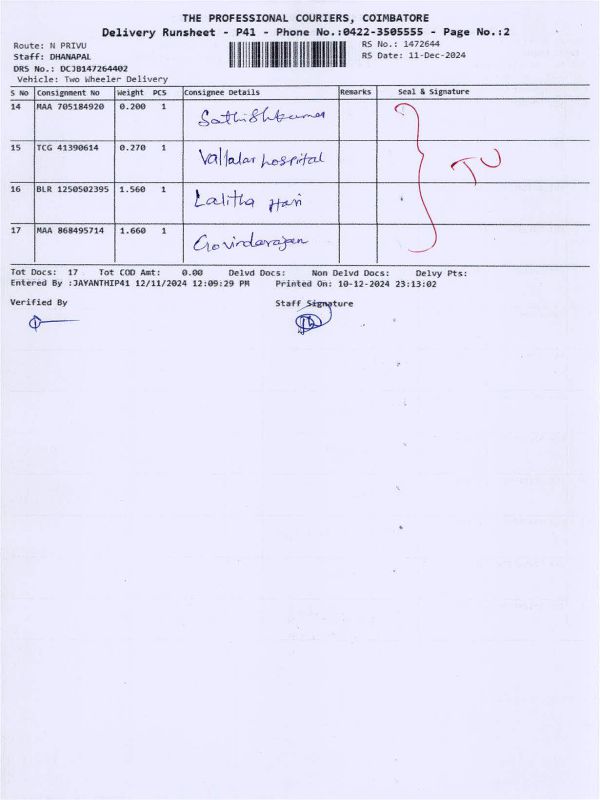 THE PROFESSIONAL COURIERS, COIMBATORE
Delivery Runsheet - P41 - Phone No.:0422-3505555 - Page No.:2
Route: N PRIVU
RS No.: 1472644
Staff: DHANAPAL
RS Date: 11-Dec-2024
DRS No.: DCJB147264402
Vehicle: Two Wheeler Delivery
S No Consignment No Weight PCS Consignee Details Remarks Seal & Signature
14 MAA 705184920 0.200 1 Sathishkumar
15 TCG 41390614 0.270 1 Vallalar hospital
16 BLR 1250502395 1.560 1 Lalitha Hari
17 MAA 868495714 1.660 1 Govindarajan
TU
Tot Docs: 17 Tot COD Amt: 0.00 Delvd Docs: Non Delvd Docs: Delvy Pts:
Entered By :JAYANTHIP41 12/11/2024 12:09:29 PM Printed On: 10-12-2024 23:13:02
Verified By Staff Signature